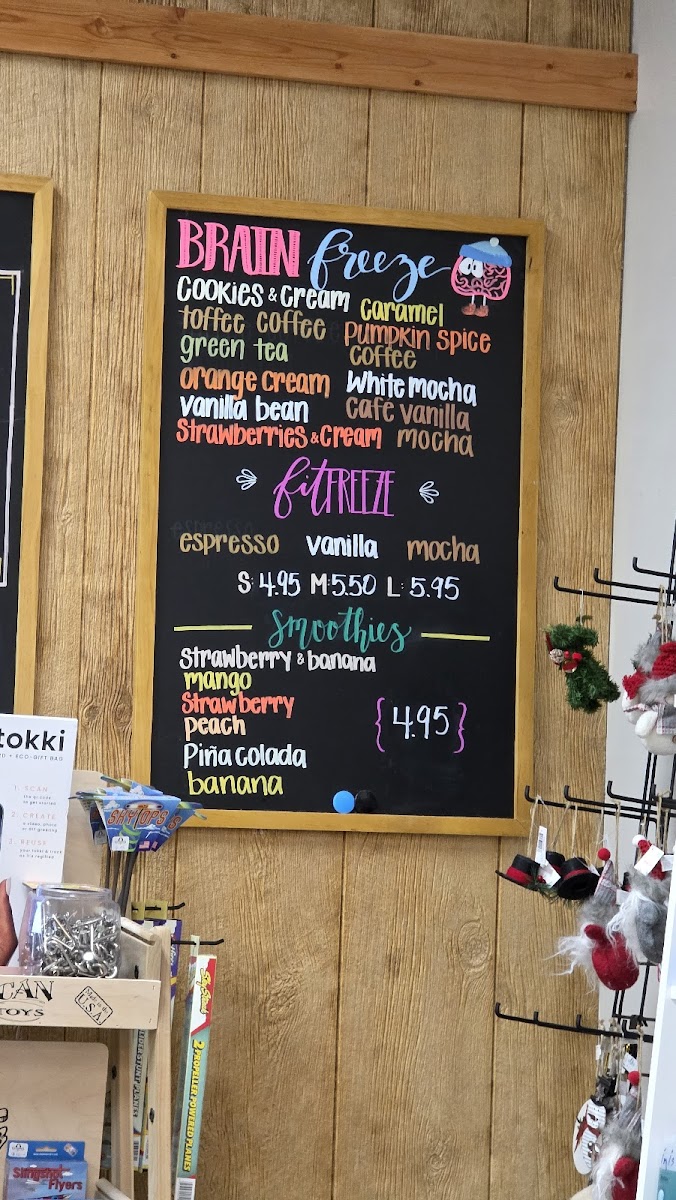 BRAIN freeze
COOKIES & Cream
Caramel
toffee coffee
Pumpkin spice
coffee
green tea
orange cream
White mocha
vanilla bean
Café vanilla
Strawberries & Cream
mocha
fitFREEZE
espresso vanilla mocha
S: 4.95 M: 5.50 L: 5.95
Smoothies
Strawberry & banana
mango
Strawberry
peach
Piña colada
banana
{4.95}
tokki
+ ECO-GIFT BAG
1. SCAN
2. CREATE
3. REUSE
SKYTOPS
CAN
TOYS
Made in the
U.S.A.
2 PROPELLER POWERED PLANES
Slingshot
Flyers